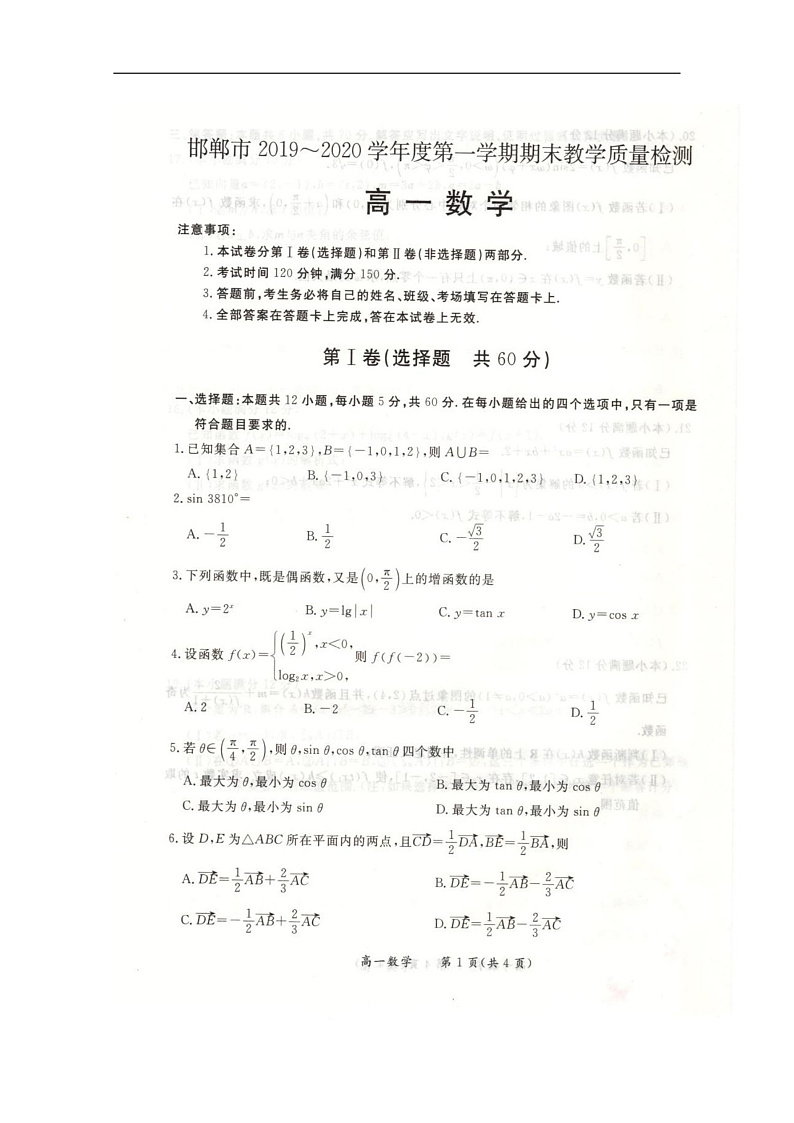 邯郸市 2019～2020 学年度第一学期期末教学质量检测
高一数学
注意事项:
1. 本试卷分第Ⅰ卷(选择题)和第Ⅱ卷(非选择题)两部分.
2. 考试时间 120 分钟,满分 150 分.
3. 答题前,考生务必将自己的姓名、班级、考场填写在答题卡上.
4. 全部答案在答题卡上完成,答在本试卷上无效.
第Ⅰ卷(选择题 共 60 分)
一、选择题:本题共 12 小题,每小题 5 分,共 60 分. 在每小题给出的四个选项中,只有一项是
符合题目要求的.
1. 已知集合 A={1,2,3},B={-1,0,1,2},则 A∪B=
A. {1,2} B. {-1,0,3} C. {-1,0,1,2,3} D. {1,2,3}
2. sin 3810°=
A. -1/2 B. 1/2 C. -√3/2 D. √3/2
3. 下列函数中,既是偶函数,又是(0,π/2)上的增函数的是
A. y=2^x B. y=lg|x| C. y=tan x D. y=cos x
4. 设函数 f(x)={(1/2)^x,x<0, log₂x,x>0, 则 f(f(-2))=
A. 2 B. -2 C. -1/2 D. 1/2
5. 若 θ∈(π/4,π/2),则 θ,sin θ,cos θ,tan θ 四个数中
A. 最大为 θ,最小为 cos θ B. 最大为 tan θ,最小为 cos θ
C. 最大为 θ,最小为 sin θ D. 最大为 tan θ,最小为 sin θ
6. 设 D,E 为△ABC 所在平面内的两点,且CD→=1/2 DA→,BE→=1/2 BA→,则
A. DE→=1/2 AB→+2/3 AC→ B. DE→=-1/2 AB→-2/3 AC→
C. DE→=-1/2 AB→+2/3 AC→ D. DE→=1/2 AB→-2/3 AC→
高一数学 第 1 页(共 4 页)